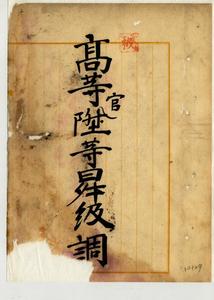 高等官陞等昇級調